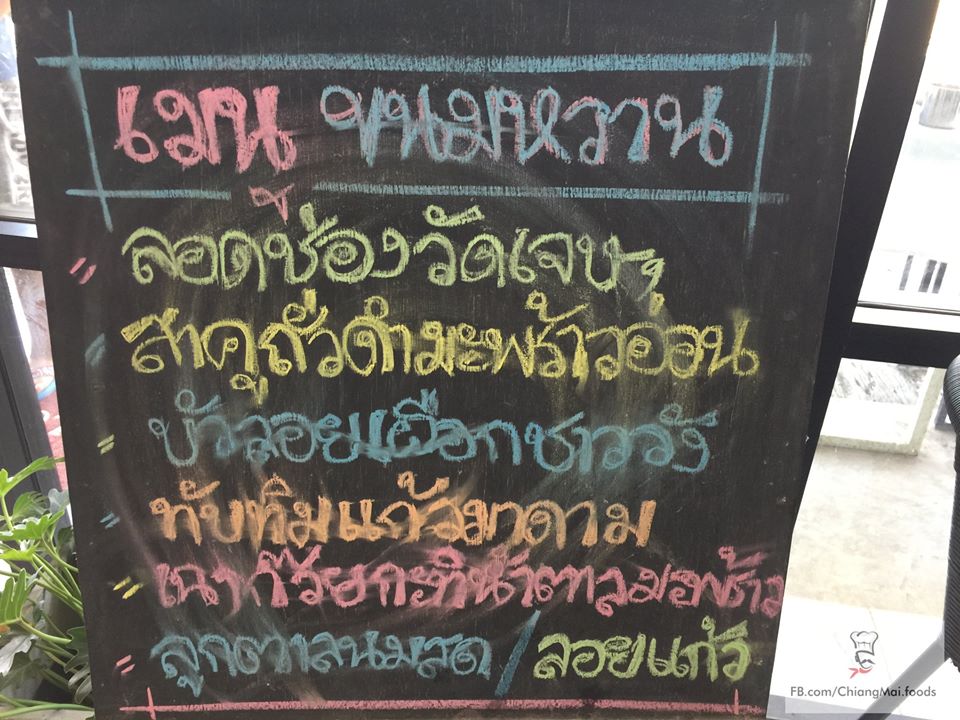 เมนู ขนมหวาน
ลอดช่องวัดเจษฯ
สาคูถั่วดำมะพร้าวออน
บัวลอยเผือกชาววัง
ทับทิมแก้วมาดาม
เฉาก๊วยกะทิน้ำตาลมะพร้าว
ลูกตาลนมสด / ลอยแก้ว
FB.com/ChiangMai.foods